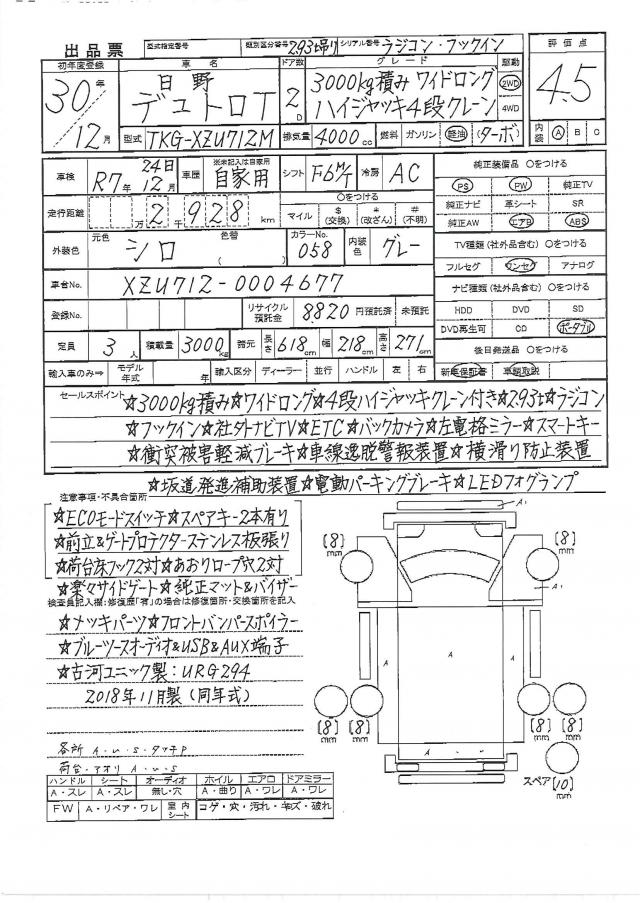 出品票 型式指定番号 類別区分番号 2.93t吊り シリアル番号 ラジコン・フックイン
初年度登録 車名 ドア数 グレード 駆動 評価点
30年 日野 2D 3000kg積み ワイドロング 2WD 4.5
デュトロT ハイジャッキ4段クレーン 4WD
12月 型式 TKG-XZU712M 排気量 4000cc 燃料 ガソリン 軽油 (ターボ) 内装 A B C
車検 R7年 24日 12月 車歴 ※未記入は自家用 自家用 シフト F6M/T 冷房 AC
純正装備品 〇をつける
PS PW 純正TV
走行距離 万 2千 928 km 〇をつける マイル $(交換) *(改ざん) #(不明)
純正ナビ 革シート SR
純正AW エアB ABS
外装色 元色 シロ 色替 ( ) カラーNo. 058 内装色 グレー
TV種類(社外品含む) 〇をつける
フルセグ ワンセグ アナログ
車台No. XZU712-0004677
ナビ種類(社外品含む) 〇をつける
登録No. リサイクル預託金 8820 円預託済 未預託
HDD DVD SD
DVD再生可 CD ポータブル
定員 3人 積載量 3000kg 諸元 長さ 618cm 幅 218cm 高さ 271cm
後日発送品 〇をつける
輸入車のみ⇒ モデル年式 年 輸入区分 ディーラー 並行 ハンドル 左 右
新車保証書 車輌取説
セールスポイント ☆3000kg積み☆ワイドロング☆4段ハイジャッキクレーン付き☆2.93t☆ラジコン
☆フックイン☆社外ナビTV☆ETC☆バックカメラ☆左電格ミラー☆スマートキー
☆衝突被害軽減ブレーキ☆車線逸脱警報装置☆横滑り防止装置
☆坂道発進補助装置☆電動パーキングブレーキ☆LEDフォグランプ
注意事項・不具合箇所
☆ECOモードスイッチ☆スペアキー2本有り
☆前立&ゲートプロテクターステンレス板張り
☆荷台床フック2対☆あおりロープ穴2対
☆楽々サイドゲート☆純正マット&バイザー
検査員記入欄:修復歴「有」の場合は修復箇所・交換箇所を記入
☆メッキパーツ☆フロントバンパースポイラー
☆ブルーツースオーディオ&USB&AUX端子
☆古河ユニック製:URG294
2018年11月製(同年式)
各所 A・U・S・タッチP
荷台・アオリ A・U・S
ハンドル シート オーディオ ホイル エアロ ドアミラー
A・スレ A・スレ 無し・穴 A・曲り A・ワレ A・ワレ
FW A・リペア・ワレ 室内シート コゲ・穴・汚れ・キズ・破れ
A・
[8]mm [8]mm
A・
A A A
[8]mm [8]mm [8]mm [8]mm
A・
スペア [10]mm